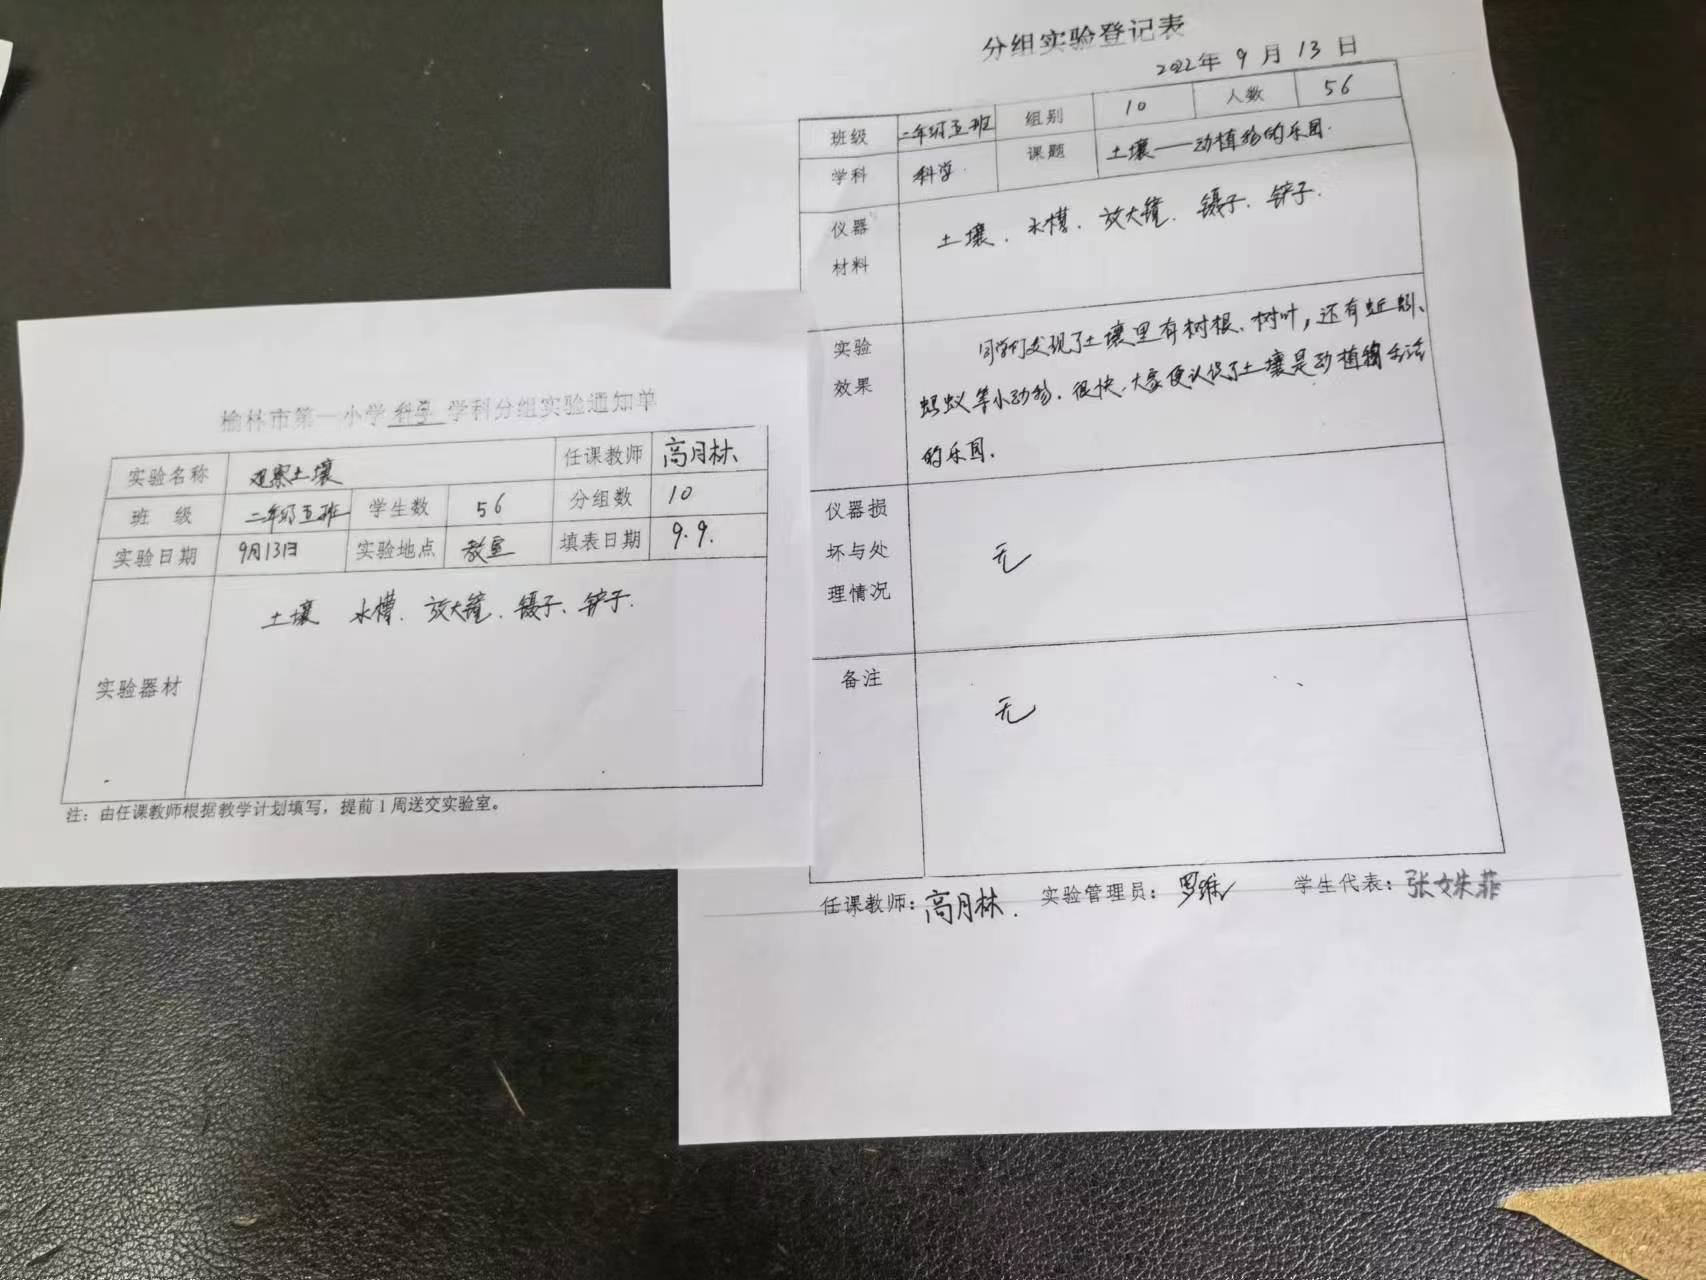 榆林市第一小学科学学科分组实验通知单
实验名称 观察土壤 任课教师 高月林
班 级 二年级五班 学生数 56 分组数 10
实验日期 9月13日 实验地点 教室 填表日期 9.9.
实验器材 土壤 水槽. 放大镜. 镊子. 铲子.
注：由任课教师根据教学计划填写，提前1周送交实验室。
分组实验登记表
2022年 9 月 13 日
班级 二年级五班 组别 10 人数 56
学科 科学. 课题 土壤——动植物的乐园.
仪器材料 土壤. 水槽. 放大镜. 镊子. 铲子.
实验效果
同学们发现了土壤里有树根、树叶，还有蚯蚓、
蚂蚁等小动物. 很快, 大家便认识了土壤是动植物生活
的乐园.
仪器损坏与处理情况 无
备注 无
任课教师：高月林. 实验管理员：罗维 学生代表：张姝菲